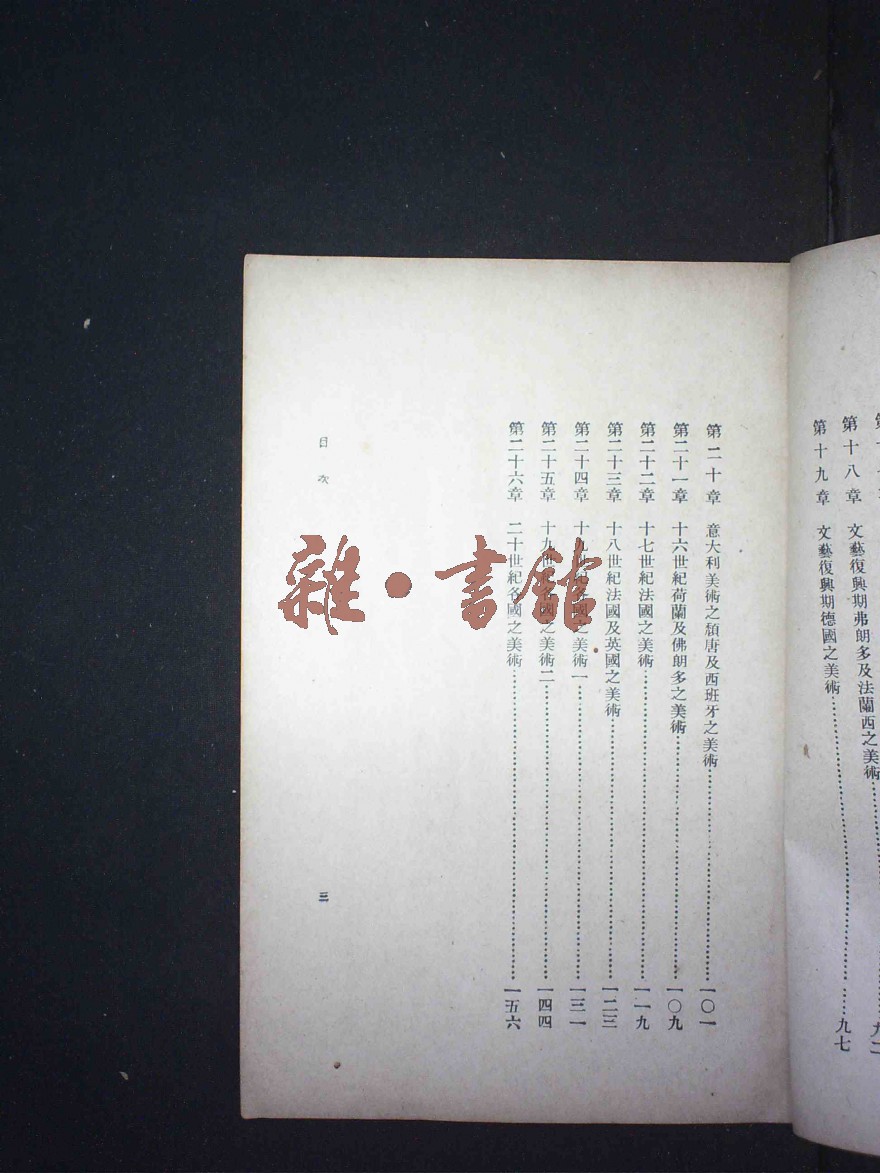 第十八章 文藝復興期弗朗多及法蘭西之美術
第十九章 文藝復興期德國之美術……九七
第二十章 意大利美術之頹唐及西班牙之美術……一〇一
第二十一章 十六世紀荷蘭及佛朗多之美術……一〇九
第二十二章 十七世紀法國之美術……一一九
第二十三章 十八世紀法國及英國之美術……一二三
第二十四章 十九世紀各國之美術一……一三一
第二十五章 十九世紀各國之美術二……一四四
第二十六章 二十世紀各國之美術……一五六
目次
三
雜·書館